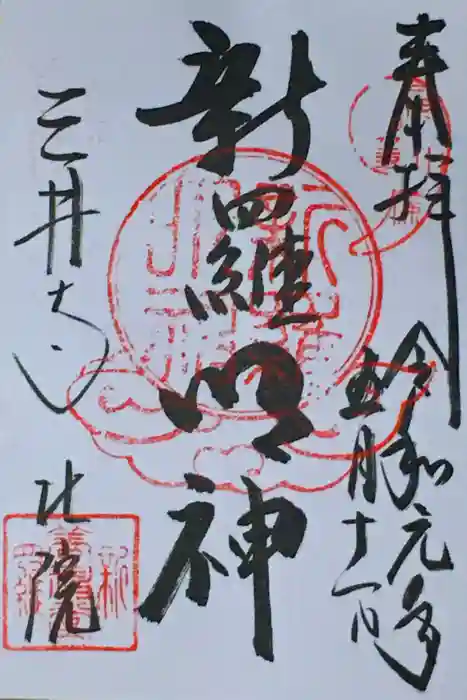 奉拝
令和元年
五月十一日
新羅明神
三井寺
北院